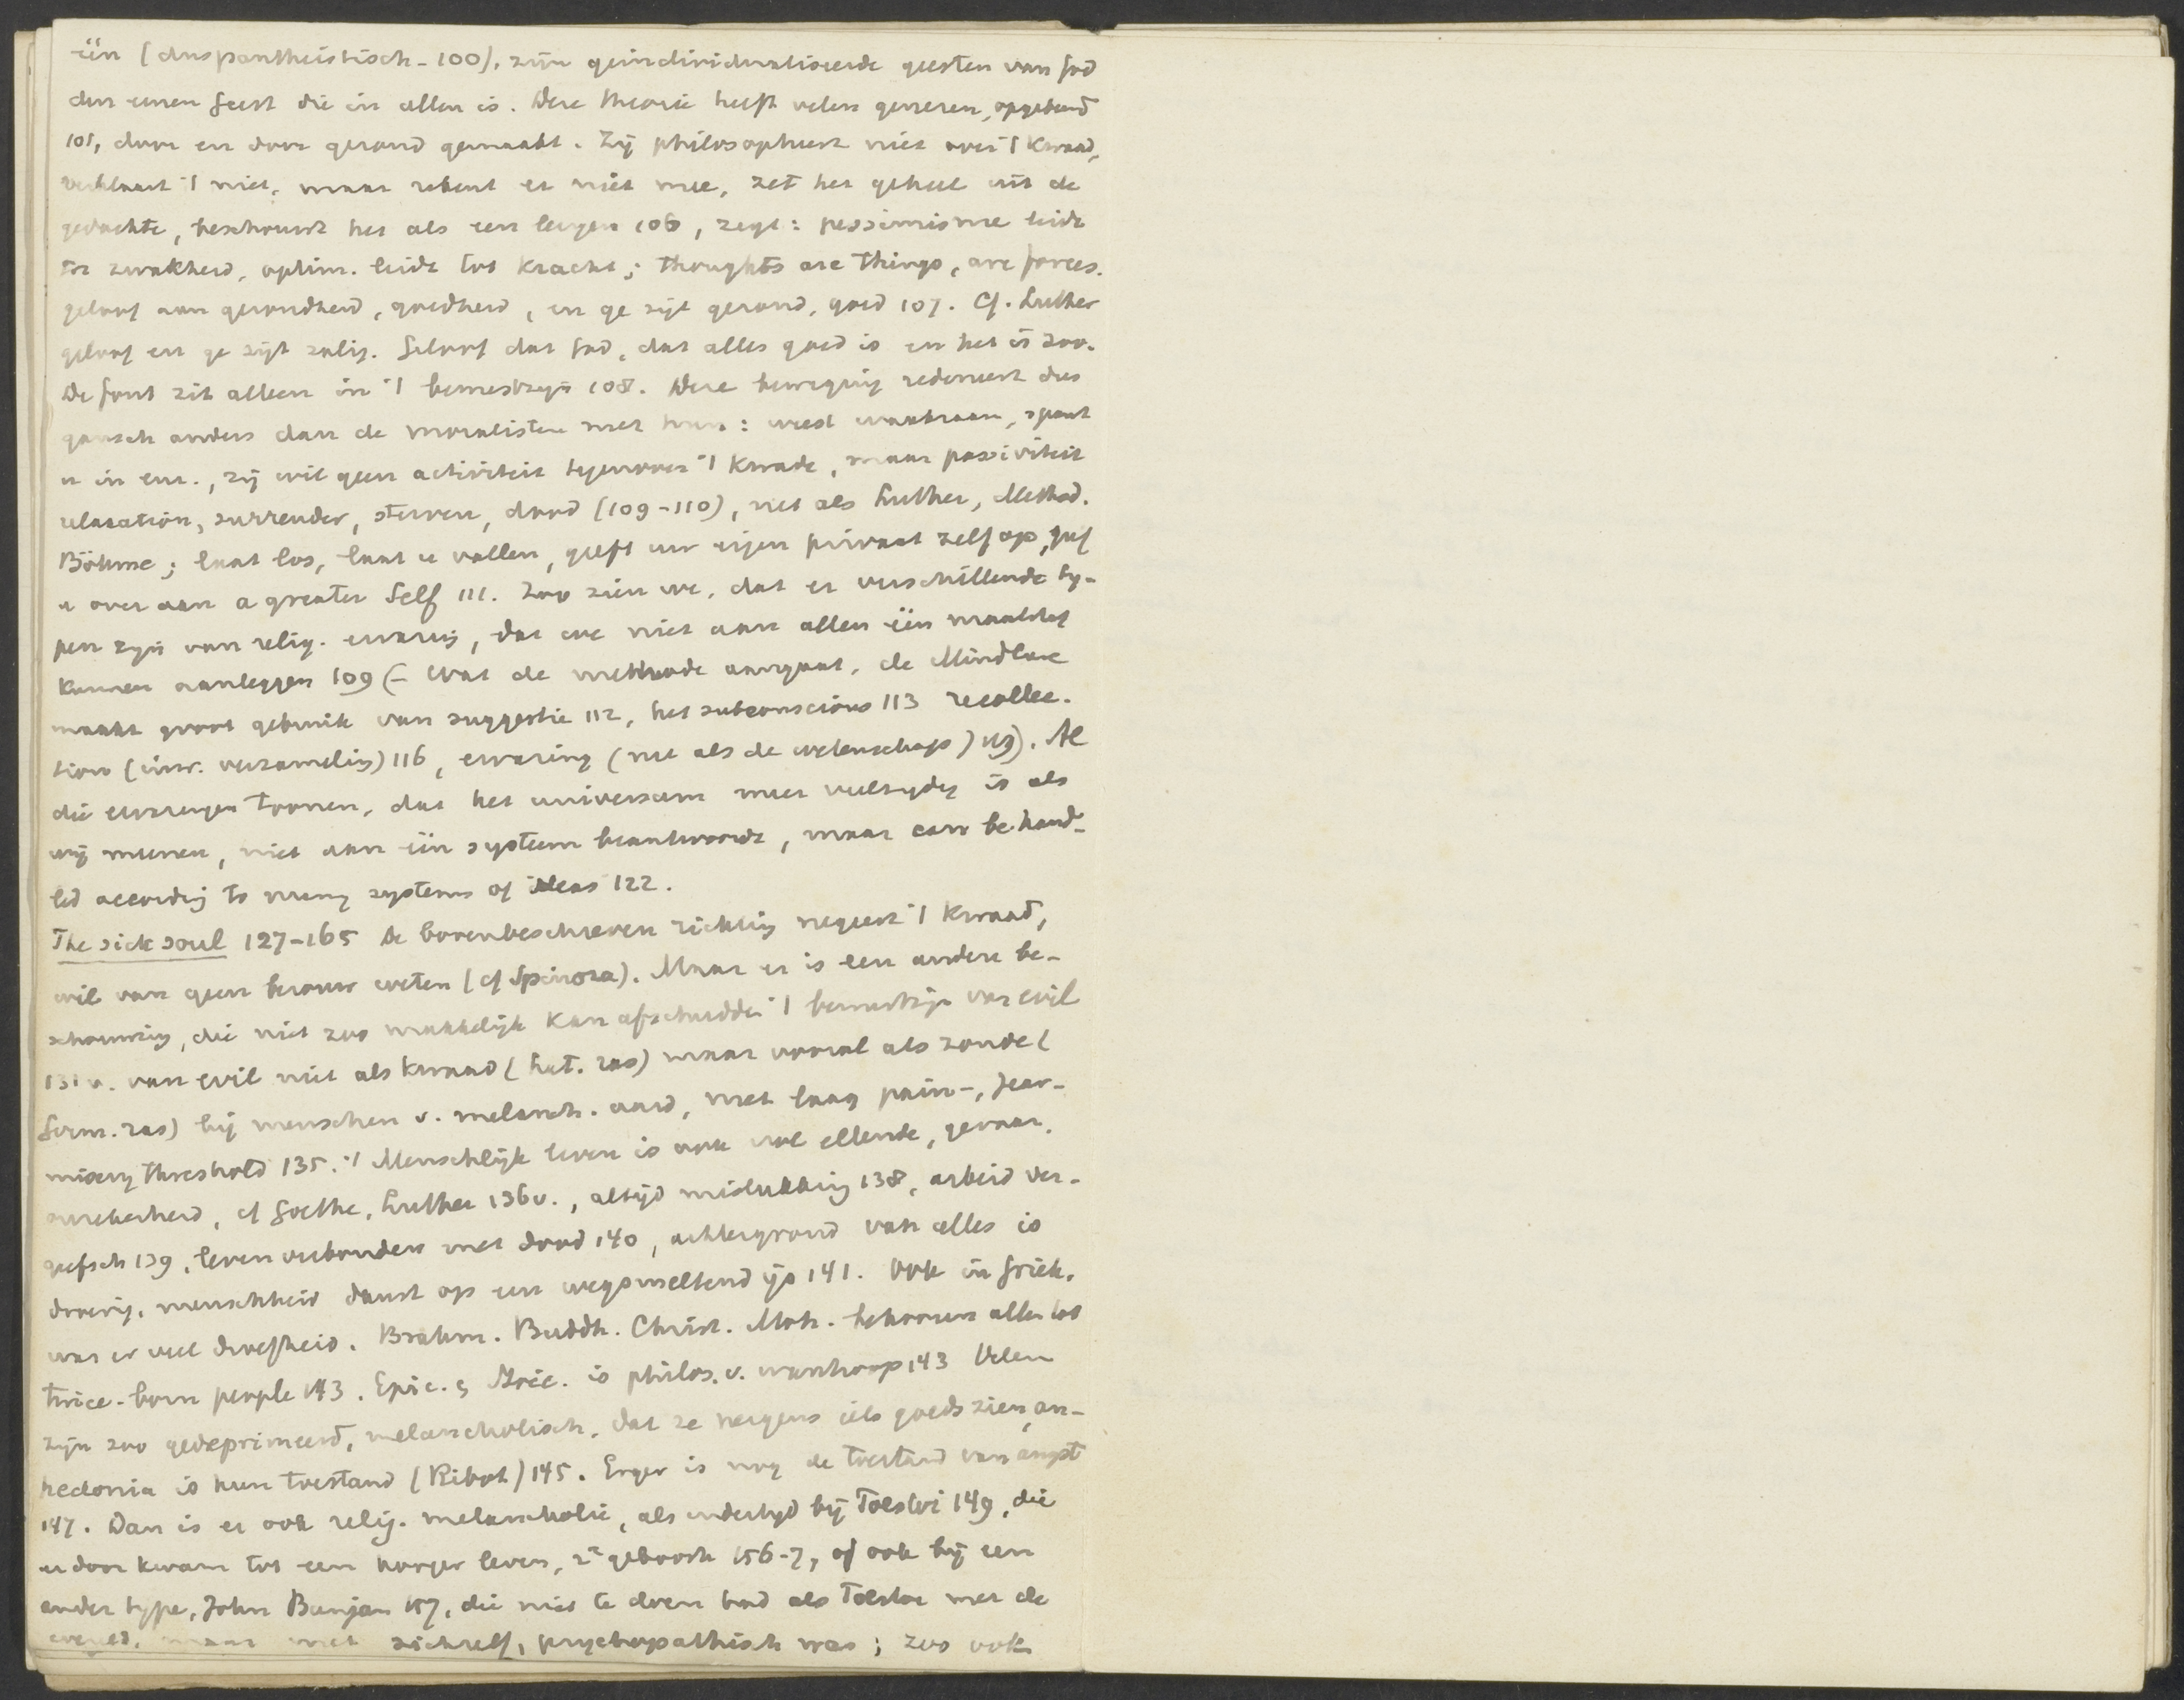 één (dus pantheistisch - 100), zijn geindividualiseerde geesten van God
den eenen Geest die in allen is. Deze theorie heeft velen genezen, opgebeurd
101, door en door gezond gemaakt. Zij philosopheert niet over 't kwaad,
verklaart 't niet, maar rekent er niet mee, zet het geheel uit de
gedachte, beschouwt het als een leugen 106, zegt: pessimisme leidt
tot zwakheid, optim. leidt tot kracht; thoughts are things, are forces.
geloof aan gezondheid, goedheid, en ge zijt gezond, goed 107. Cf. Luther
geloof en ge zijt zalig. Geloof dat God, dat alles goed is en het is zoo.
De fout zit alleen in 't bewustzijn 108. Deze beweging redeneert dus
gansch anders dan de moralisten met hun: weest waakzaam, spant
u in enz., zij wil geen activiteit tegenover 't kwade, maar passiviteit
relaxation, surrender, sterven, dood (109-110), net als Luther, Method.
Böhme; laat los, laat u vallen, geeft uw eigen privaat zelf op, geef
u over aan a greater Self 111. Zoo zien we, dat er verschillende ty-
pen zijn van relig. ervaring, dat we niet aan allen één maatstaf
kunnen aanleggen 109 (- Wat de methode aangaat, de Mindcure
maakt groot gebruik van suggestie 112, het subconscious 113 recollec-
tion (inw. verzameling) 116, ervaring (net als de wetenschap) 119). Al
die ervaringen toonen, dat het universum meer veelzijdig is als
wij meenen, niet aan één systeem beantwoordt, maar can be hand-
led according to many systems of ideas 122.
The sick soul 127-165 De bovenbeschreven richting negeert 't kwaad,
wil van geen berouw weten (cf Spinoza). Maar er is een andere be-
schouwing, die niet zoo makkelijk kan afschudden 't bewustzijn van evil
131 v. van evil niet als kwaad (Lat. ras) maar vooral als zonde (
Germ. ras) bij menschen v. melanch. aard, met laag pain-, fear-
misery threshold 135. 't Menschlijk leven is ook vol ellende, gevaar,
onzekerheid, cf Goethe, Luther 136 v., altijd mislukking 138, arbeid ver-
geefsch 139, leven verbonden met dood 140, achtergrond van alles is
droevig, menschheid danst op een wegsmeltend ijs 141. Ook in Griek.
was er veel droefheid. Brahm. Buddh. Christ. Moh. behooren allen tot
twice-born people 143. Epic. & Stoic. is philos. v. wanhoop 143 Velen
zijn zoo gedeprimeerd, melancholisch, dat ze nergens iets goeds zien, an-
hedonia is hun toestand (Ribot) 145. Erger is nog de toestand van angst
147. Dan is er ook relig. melancholie, als indertijd bij Tolstoi 149, die
er door kwam tot een hooger leven, 2e geboorte 156-7, of ook bij een
ander type, John Bunjan 157, die niet te doen had als Tolstoi met de
wereld, maar met zichzelf, psychopathisch was; zoo ook